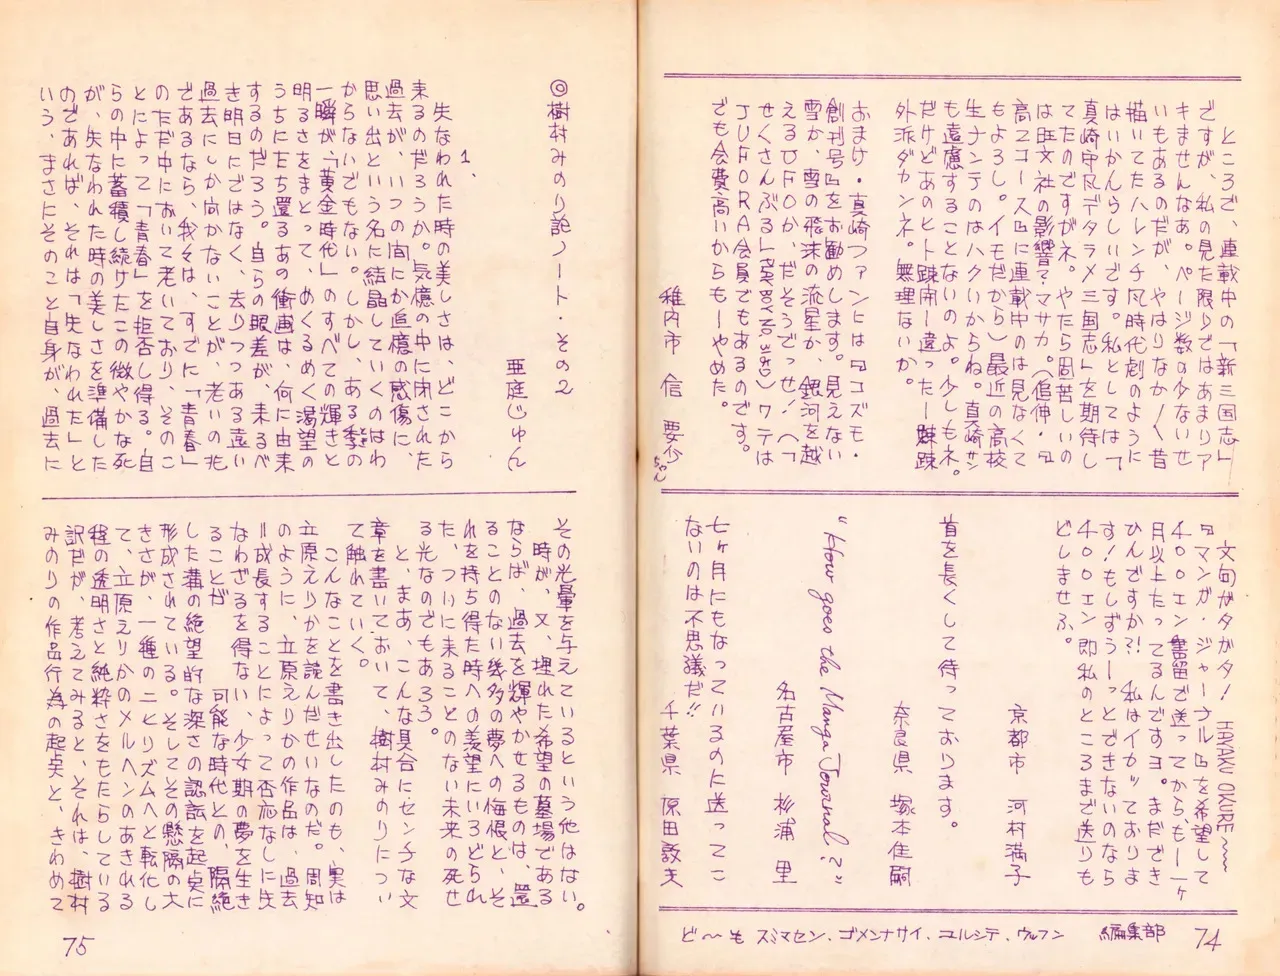 ところで、連載中の「新三国志」
ですが、私の見た限りではあまりア
キませんなあ。ページ数の少ないせ
いもあるのだが、やはりなか〱昔
描いてたハレンチ凡時代劇のように
はいかんらしいです。私としては「
真崎守凡デタラメ三国志」を期待し
てたのですがネ。やたら固苦しいの
は旺文社の影響？マサカ。（追伸・『
高二コース』に連載中のは見なくて
もよろし。イモだから）最近の高校
生ナンテのはハクいからね。真崎サン
も遠慮することないのよ。少しもネ。
だけどあのヒト疎開ー違ったー疎
外派ダカンネ。無理ないか。
おまけ・真崎ファンには『コズモ・
創刊号』をお勧めします。見えない
雪か、雪の飛沫の流星か、銀河を越
えるUFOか、だそうでっせ！へっ
せくさんぶる」
ワテは
JUFORA会員でもあるのです。
でも会費高いからもーやめた。
稚内市 信 要少
ちゃん
文句がタがタ！ HAYAKU OKURE〜〜
『マンガ・ジャーナル』を希望して
400エン書留で送ってから、もー一ヶ
月以上たってるんですヨ。まだでき
ひんですか?! 私はイカッておりま
す！もしずうーっとできないのなら
400エン即私のところまで送りも
どしませふ。
京都市 河村満子
首を長くして待っております。
奈良県 塚本佳嗣
“How goes the Manga Journal?”
名古屋市 杉浦 里
七ヶ月にもなっているのに送ってこ
ないのは不思議だ!!
千葉県 原田敦夫
ど〜も スミマセン、ゴメンナサイ、ユルシテ、ウッフン 編集部 74
◎樹村みのり論ノート・その2
亜庭じゅん
1、
失なわれた時の美しさは、どこから
来るのだろうか。気憶の中に閉された
過去が、いつの間にか追憶の感傷に、
思い出という名に結晶していくのはわ
からないでもない。しかし、ある季の
一瞬が「黄金時代」のすべての輝きと
明るさをまとって、めくるめく渇望の
うちにたち還るあの衝画は、何に由来
するのだろう。自らの眼差が、来るべ
き明日にではなく、去りつつある遠い
過去にしか向かないことが、老いの兆
であるなら、我々は、すでに「青春」
のただ中において老いており、そのこ
とによって「青春」を拒否し得る。自
らの中に蓄積し続けたこの微やかな死
が、失なわれた時の美しさを準備した
のであれば、それは「失なわれた」と
いう、まさにそのこと自身が、過去に
その光暈を与えているという他はない。
時が、又、埋れた希望の墓場である
ならば、過去を輝やかせるものは、還
ることのない幾多の夢への悔恨と、そ
れを持ち得た時への羨望にいろどられ
た、ついに来ることのない未来の死せ
る光なのでもあろう。
と、まあ、こんな具合にセンチな文
章を書いておいて、樹村みのりについ
て触れていく。
こんなことを書き出したのも、実は
立原えりかを読んだせいなのだ。周知
のように、立原えりかの作品は、過去
＝成長することによって否応なしに失
なわざるを得ない、少女期の夢を生き
ることが 可能な時代との、隔絶
した溝の絶望的な深さの認識を起点に
形成されている。そしてその懸隔の大
きさが、一種のニヒリズムへと転化し
て、立原えりかのメルヘンのあきれる
程の透明さと純粋さをもたらしている
訳だが、考えてみると、それは、樹村
みのりの作品行為の起点と、きわめて
75